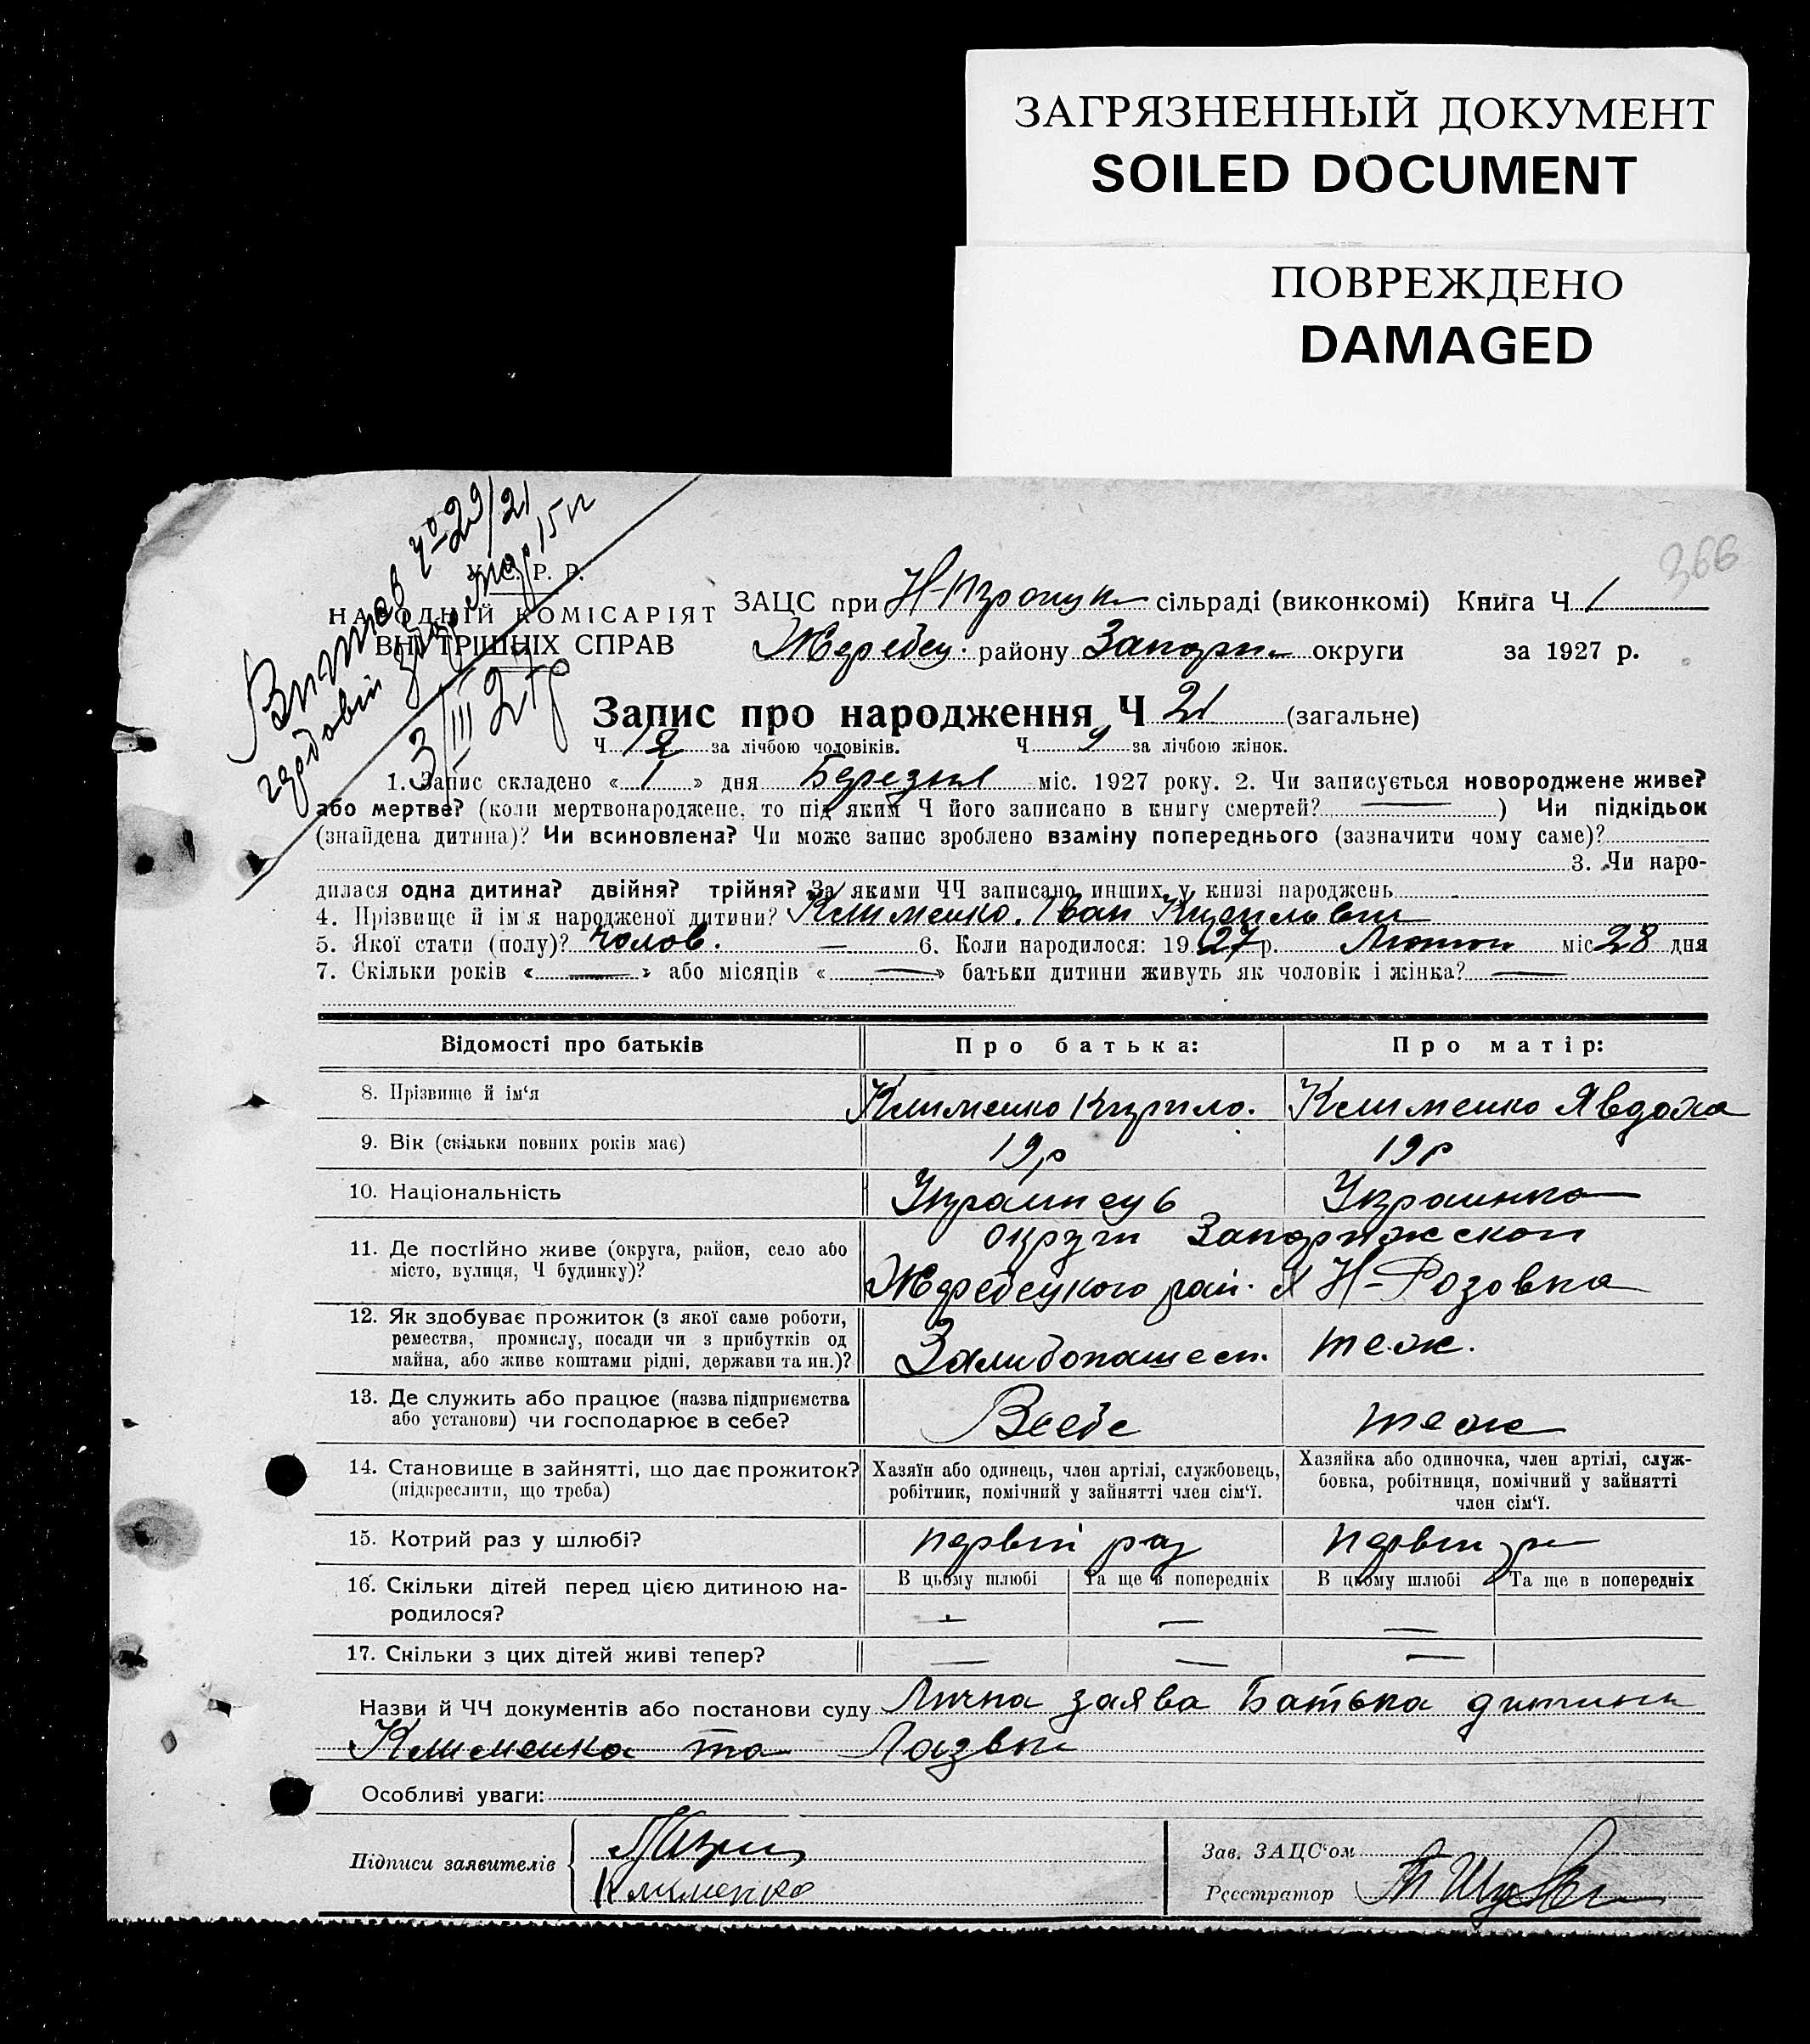 ЗАГРЯЗНЕННЫЙ ДОКУМЕНТ
SOILED DOCUMENT
ПОВРЕЖДЕНО
DAMAGED
366
29/21
У. С. Р. Р.
НАРОДНІЙ КОМІСАРІЯТ
ВНУТРІШНІХ СПРАВ
3/III 27р
ЗАЦС при сільраді (виконкомі) Книга Ч 1
Жеребец. району Запориж округи за 1927 р.
Запис про народження Ч 21 (загальне)
Ч 12 за лічбою чоловіків. Ч 9 за лічбою жінок.
1. Запис складено « 1 » дня Березня міс. 1927 року. 2. Чи записується новороджене живе?
або мертве? (коли мертвонароджене, то під яким Ч його записано в книгу смертей? —) Чи підкідьок
(знайдена дитина)? Чи всиновлена? Чи може запис зроблено взаміну попереднього (зазначити чому саме)?
3. Чи наро-
дилася одна дитина? двійня? трійня? За якими ЧЧ записано инших у книзі народжень
4. Прізвище й ім'я народженої дитини? Клименко. Іван Кирилович
5. Якої стати (полу)? чолов. — 6. Коли народилося: 1927 р. Лютого міс 28 дня
7. Скільки років « — » або місяців « — » батьки дитини живуть як чоловік і жінка? —
Відомості про батьків Про батька: Про матір:
8. Прізвище й ім'я Клименко Кирило. Клименко Явдоха
9. Вік (скільки повних років має) 19р 19р
10. Національність Украинець Украинка
округи Запорижскои
11. Де постійно живе (округа, район, село або
місто, вулиця, Ч будинку)? Жеребецкого рай. Н-Розовка
12. Як здобуває прожиток (з якої саме роботи,
ремества, промислу, посади чи з прибутків од
майна, або живе коштами рідні, держави та ин.)? теж.
13. Де служить або працює (назва підприємства
або установи) чи господарює в себе? Всебе теж
14. Становище в зайнятті, що дає прожиток?
(підкреслити, що треба)
Хазяїн або одинець, член артілі, службовець,
робітник, помічний у зайнятті член сім'ї.
Хазяйка або одиночка, член артілі, служ-
бовка, робітниця, помічний у зайнятті
член сім'ї.
15. Котрий раз у шлюбі? первий раз первий раз
В цьому шлюбі Та ще в попередніх В цьому шлюбі Та ще в попередніх
16. Скільки дітей перед цією дитиною на-
родилося? — — —
17. Скільки з цих дітей живі тепер? — — —
Назви й ЧЧ документів або постанови суду Лична заява Батька дитини
Клименка та
Особливі уваги:
Підписи заявителів
Клименко
Зав. ЗАЦС'ом
Реєстратор